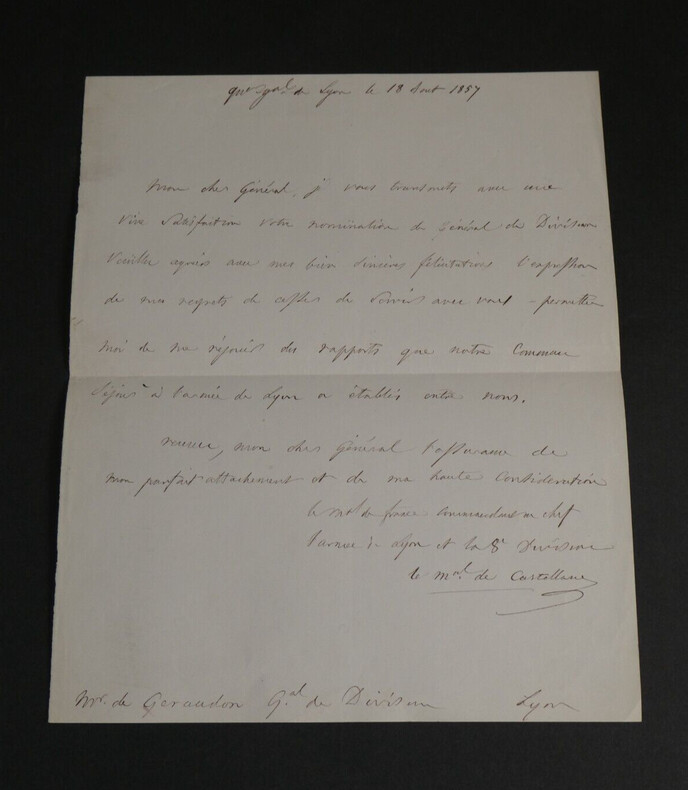 qer gal de Lyon le 18 Aout 1857
Mon cher Général, je vous transmets avec une
vive satisfaction votre nomination de général de Division
Veuillez agréer avec mes bien sincères félicitations l'expression
de mes regrets de cesser de servir avec vous - permettez
moi de me réjouir des rapports que notre commun
séjour à l'armée de Lyon a établis entre nous.
recevez, mon cher Général l'assurance de
mon parfait attachement et de ma haute considération
le mal de france commandant en chef
l'armée de Lyon et la 8e Division
le mal. de Castellane
Mr. de Geraudon Gal de Division Lyon